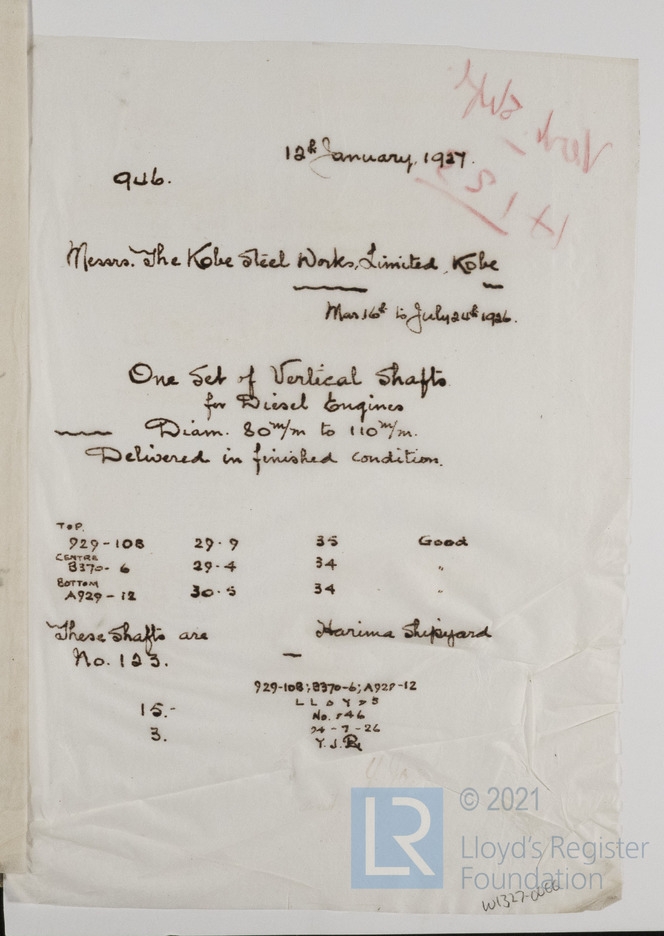 12th January, 1927.
946.
Messrs. The Kobe Steel Works, Limited, Kobe
Mar 16th to July 24th 1926.
One Set of Vertical Shafts
for Diesel Engines
Diam. 80 m/m to 110 m/m.
Delivered in finished condition.
TOP.
929-10B 29.9 35 Good
CENTRE
B370-6 29.4 34 "
BOTTOM
A929-12 30.5 34 "
These shafts are Harima Shipyard
No. 123.
929-10B; B370-6; A929-12
15.- LLOYDS
No. 946
3. 24-7-26
Y.J.
LR
© 2021
Lloyd's Register
Foundation